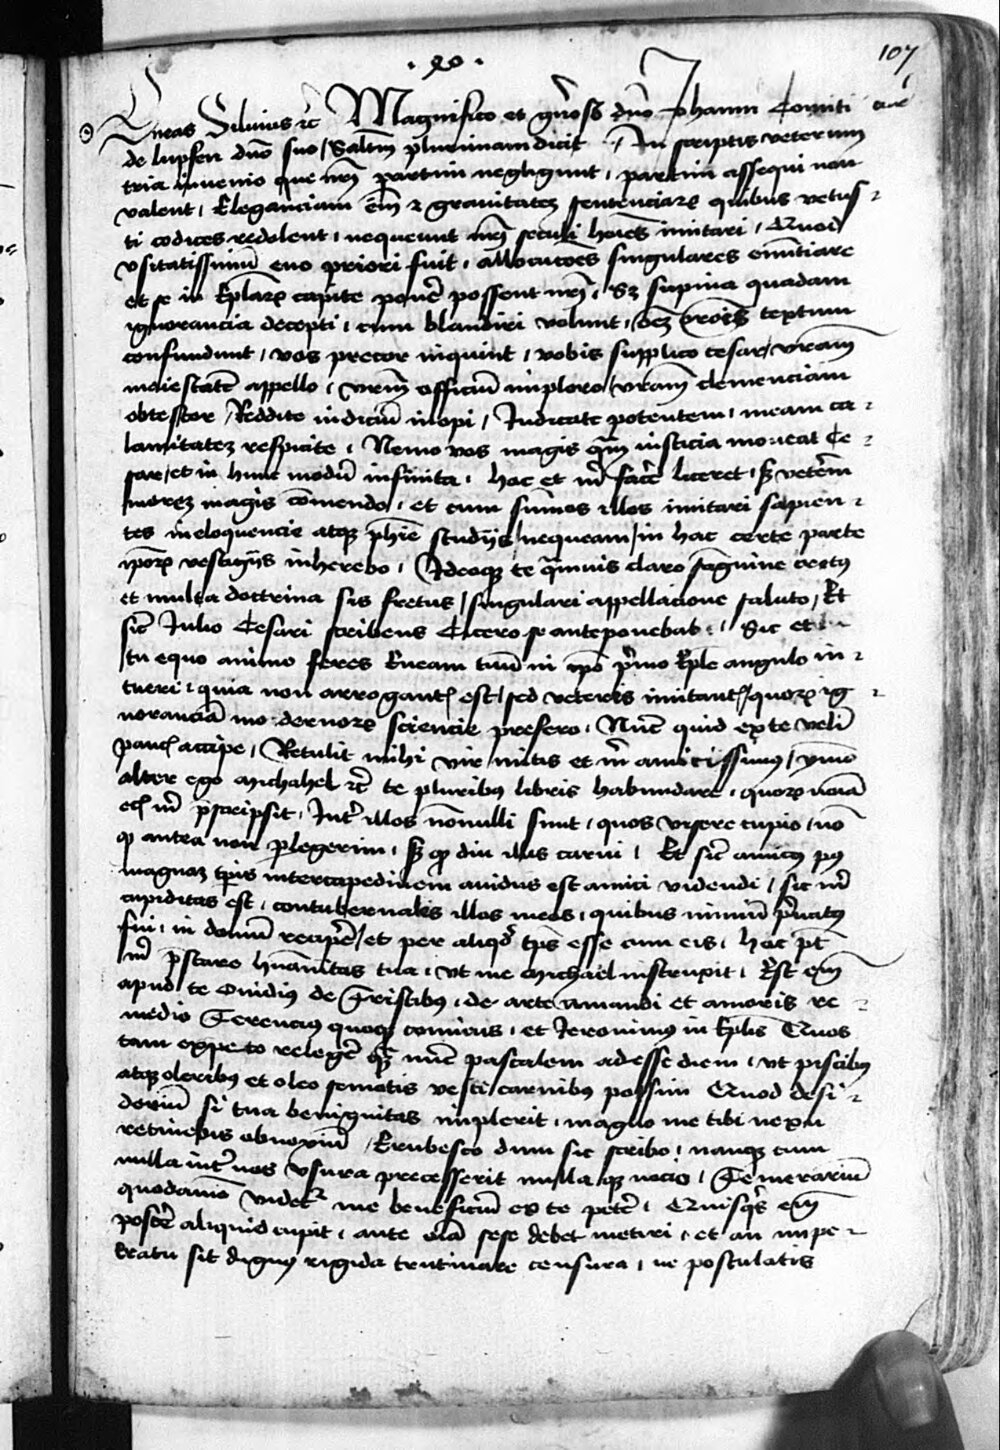 107
· xo ·
Eneas Silvius rc Magnifico et gn̄oso dn̄o Johanni Comiti
de lupfen dn̄o suo / Saltm̄ plurimam dicit / In scriptis veterum
tria invenio que nr̄i partim negligunt , partim assequi non
valent , Eleganciam em̄ et gravitatez sentenciarꝝ quibus vetus
ti codices redolent , nequeunt nr̄i seculi hoīes imitari , Quod
usitatissimū evo priori fuit , allocucōes singulares enūtiare
et se in Eplarꝝ capite ponē possent nr̄i , Sꝫ supina quadam
ignorancia decepti , cum blandiri volunt , oēz orōis textum
confundunt , vos precor inquiunt , vobis supplico cesar / vr̄am
maiestatē appello , vrm̄ officiū imploro / vr̄am clemenciam
obtestor / Reddite iudiciū inopi / Judicate potentem , meam ca
lamitatez respicite , Nemo vos magis qm̄ iusticia moveat Ce
sar / et in hunc modū infinita , hac et m̄ facē liceret , sꝫ veterm̄
morez magis cōmendo , et cum sum̄os illos imitari sapien
tes in eloquencie atqꝫ phīe studijs / nequeam / in hac certe parte
ip̄orꝫ vestigijs inherebo , Adeoqꝫ te qmvis claro sāguine cretus
et multa doctrina sis fretus / singulari appellacione saluto / Et
sic Julio Cesari scribens Cicero se anteponebat , Sic et
tu equo animo feres Eneam tuū in ip̄o pīmo Eple angulo in
tueri , quia non arrogantꝭ est / sed veteres imitantꝭ / quorꝝ ig
noranciā modernorꝝ sciencie prefero , Nūc quid ex te velī
paucꝭ accipe , Retulit mihi vir mitis et m̄ amicissimus / ymmo
alter ego Michahel rc te pluribus libris habundare , quorꝝ noīa
ecꝭ m̄ p̄scripsit , Intr̄ illos nōnulli sunt , quos visere cupio , nō
qꝫ antea non plegerim , sꝫ qꝫ diu illis carui , Et sic amicus pꝰ
magnaꝫ tpis intercapedinem avidus est amici videndi / sic m̄
cupiditas est , contubernales illos meos , quibus nimiū pvatus
fui , in domū recipē / et per aliqd tpꝰ esse cum eis , hac pt
m̄ p̄stare humāitas tua , ut me Michael instruxit , Est em̄
apud te Ovidius de Tristibus , de arte amandi et amoris re
medio Terencius quoqꝫ comicus , et Jeronimus in Eplis Quos
tam expeto relegē qm̄ nūc pascalem adesse diem , ut piscibus
atqꝫ oleribus et oleo semotis vesci carnibus possim Quod desi
deriū si tua benignitas implerit , magno me tibi nexu
retinebis obnoxiū / Erubesco dum sic scribo , nanqꝫ cum
nulla intr̄ nos usura precesserit nulla qꝫ nocio / Temerariū
quodamō videtʳ me beneficiū ex te petē , Quisqs em̄
poscē aliquid cupit , ante oīa sese debet metiri , et an impe
tratu sit dignus rigida trutinare censura , ne postulatis